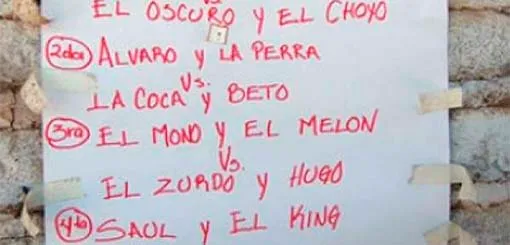 EL OSCURO y EL CHOYO
2da ALVARO y LA PERRA
Vs.
LA COCA y BETO
3ra EL MONO y EL MELON
Vs.
EL ZURDO y HUGO
4ta SAUL y EL KING